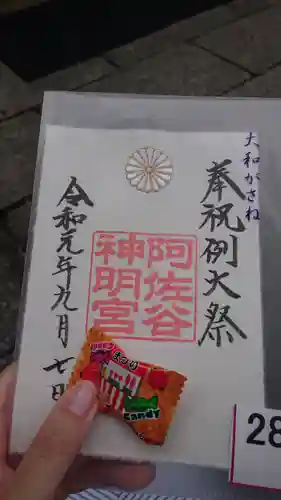 大和がさね
奉祝例大祭
阿佐谷
神明宮
令和元年九月七日
まつり
CANDY
28